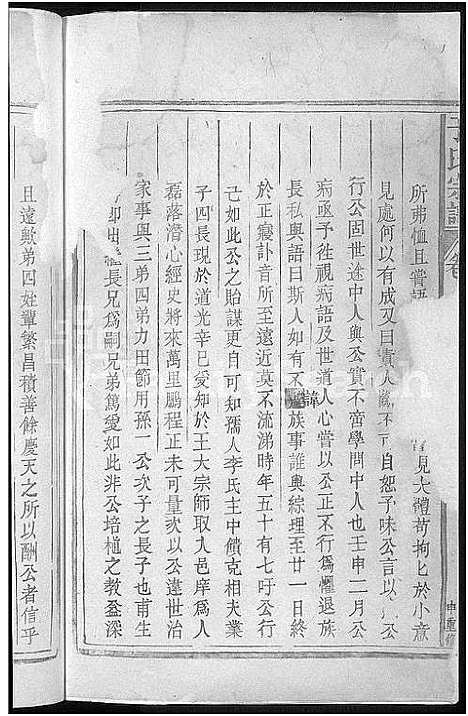 于氏宗譜
卷
所弗恤且嘗語 見大體苟拘匕於小意
見處何以有成又曰責人 不 自恕予味公言以 公
行公固世途中人與公實不啻學問中人也壬申二月公
病亟予徃視病語及世道人心嘗以公正不行爲懼退族
長私與語曰斯人如有不諱族事誰與綜理至廿一日終
於正寢訃音所至遠近莫不流涕時年五十有七吁公行
己如此公之貽謀更自可知孺人李氏主中饋克相夫業
子四長現於道光辛巳受知於王大宗師取入邑庠爲人
磊落潛心經史將來萬里鵬程正未可量次以公違世治
家事與三弟四弟力田節用孫一公次子之長子也甫生
卽出 長兄爲嗣兄弟篤愛如此非公培植之教益深
且遠歟弟四姓輩繁昌積善餘慶天之所以酬公者信乎
申重修